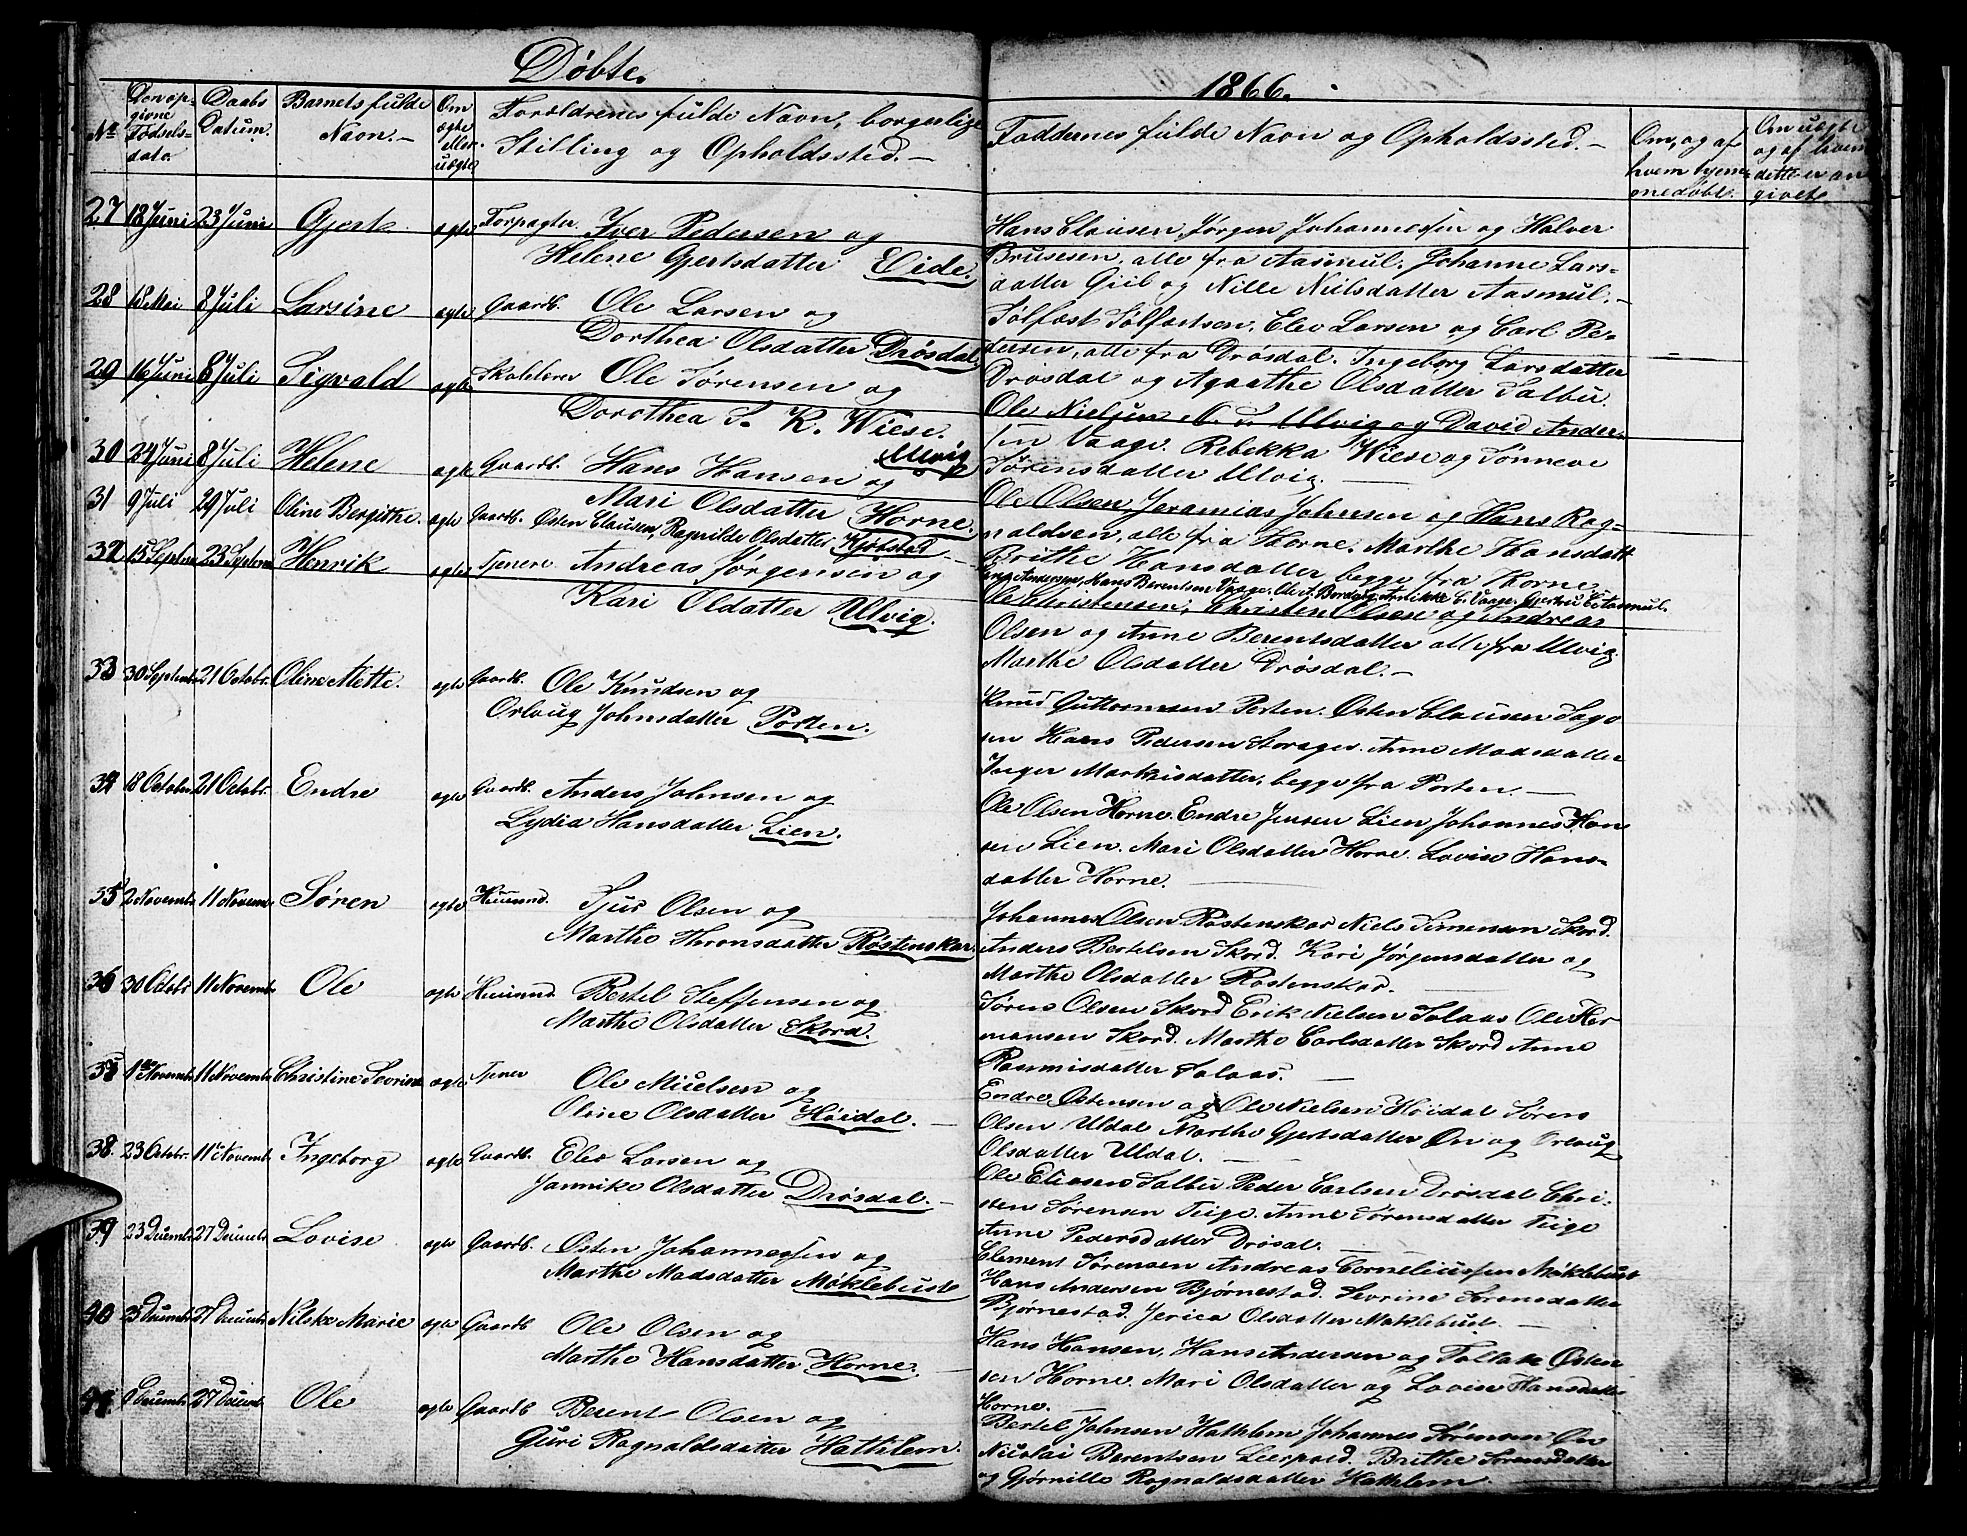 Døbte.
1866.
No
Den op-
givne
Fødsels-
dato.
Daabs
Datum.
Barnets fulde
Navn.-
Om
ægte
eller
uægte
Forældrenes fulde Navn, borgerlige
Stilling og Opholdssted.-
Faddernes fulde Navn og Opholdssted.-
Om, og af
hvem hjem-
medøbt.
Om uægte
og af hvem
dette er an
givet.
27 Juni 23 Juni Gjert ægte Forpagter Iver Pedersen og
Helene Gertsdatter Eide.
Hans Clausen, Jørgen Johannessen og Halver
Brusesen, alle fra Aasmul. Johanne Lars-
datter Giil og Nille Nielsdatter Aasmul.-
28 18 Mai 8 Juli Larsine ægte Gaardb. Ole Larsen og
Dorthea Olsdatter Drøsdal.
Tølfast Tølfastsen, Elev Larsen og Carl Pe-
dersen, alle fra Drøsdal. Ingeborg Larsdatter
Drøsdal og Agaathe Olsdatter Salbu.
29 16 Juni 8 Juli Sigvald ægte Skolelærer Ole Sørensen og
Dorothea S. K. Wiese.
Ulvig
Ole Nielsen Ulvig og David Ander-
sen Vaage. Rebekka Wiese og Sønneve
Sørensdatter Ulvig.
30 24 Juni 8 Juli Helene ægte Gaardb. Hans Hansen og
Mari Olsdatter Horne.
Ole Olsen, Jeremias Johnsen og Hans Rag-
naldsen, alle fra Horne. Marthe Hansdatt
Brithe Hansdatter begge fra Horne.
31 9 Juli 29 Juli Oline Bergithe. ægte Gaardb. Østen Clausen, Ragnilde Olsdatter Hjødstad
Andersen, Hans Berentsen Vaage. Ole A. Annikke C. Vaage. Gjertru C. Aasmul.
32 15 Septem 23 Septem Henrik ægte Tjenere Andreas Jørgensen og
Kari Oldatter Ulvig.
Ole Christensen, Christen Olsen og Andreas
Olsen og Anne Berentsdatter alle fra Ulvig
Marthe Olsdatter Drøsdal.-
33 30 Septemb 21 Octobr. Oline Mette. ægte Gaardb. Ole Knudsen og
Orloug Johnsdatter Porten.
Knud Guttormsen Porten. Østen Clausen Sago
sen Hans Pedersen Storager. Anne Madsdatter
Inger Markusdatter, begge fra Porten.-
34 18 October 21 Octobr. Endre ægte Gaardb. Anders Johnsen og
Lydia Hansdatter Lien.
Ole Olsen Horne. Endre Jensen Lien Johannes Han
sen Lien. Mari Olsdatter Horne. Lovise Hans-
datter Horne.
35 2 Novemb. 11 Novemb. Søren ægte Huusmd. Sjur Olsen og
Marthe Aronsdatter Røstenskar.
Johannes Olsen Røstenskar Niels Simonsen Skord.
Anders Bertelsen Skord. Kari Jørgensdatter og
Marthe Olsdatter Røstenskar.
36 30 Octobr 11 Novemb. Ole ægte Huusmd. Bertel Steffensen og
Marthe Olsdatter Skord.
Sørens Olsen Skord Erik Nielsen Solaas Ole Her
mansen Skord. Marthe Carlsdatter Skord Anne
Rasmusdatter Solaas.
37 Novemb. 11 Novemb. Christine Sevrine ægte Tjener Ole Nielsen og
Oline Olsdatter Høidal.-
Endre Østensen og Ole Nielsen Høidal Søren
Olsen Uldal Marthe Gjertsdatter Øn og Orloug
Olsdatter Uldal.
38. 23 Octobr. 11 Novemb. Ingeborg ægte Gaardb. Elev Larsen og
Jannike Olsdatter Drøsdal.-
Ole Eliasen Salbu Peder Carlsen Drøsdal Chri-
sten Sørensen Teige. Anne Sørensdatter Teige
Anne Pedersdatter Drøsal.
39 23 Decemb. 27 Decemb. Lovise ægte Gaardb. Østen Johannessen og
Marthe Madsdatter Møklebust
Clement Sørensen Andreas Corneliussen Møklebust
Hans Andersen Bjørnestad. Sevrine Sørensdatter
Bjørnestad. Jerica Olsdatter Møklebust.-
40 25 Decemb. 27 Decemb. Nilske Marie ægte Gaardb Ole Olsen og
Marthe Hansdatter Horne.-
Hans Hansen, Hans Andersen og Tollak Østen
sen Horne. Mari Olsdatter og Lovise Hansdatter
Horne.
41 Decemb. 27 Decemb. Ole ægte Gaardb Berent Olsen og
Guri Ragnaldsdatter Hathlem.
Bertel Johnsen Hathlem Johannes Sørensen Øn
Nicolai Berentsen Leerpold. Brithe Sørensdatter
og Gjørnille Ragnaldsdatter Hathlem